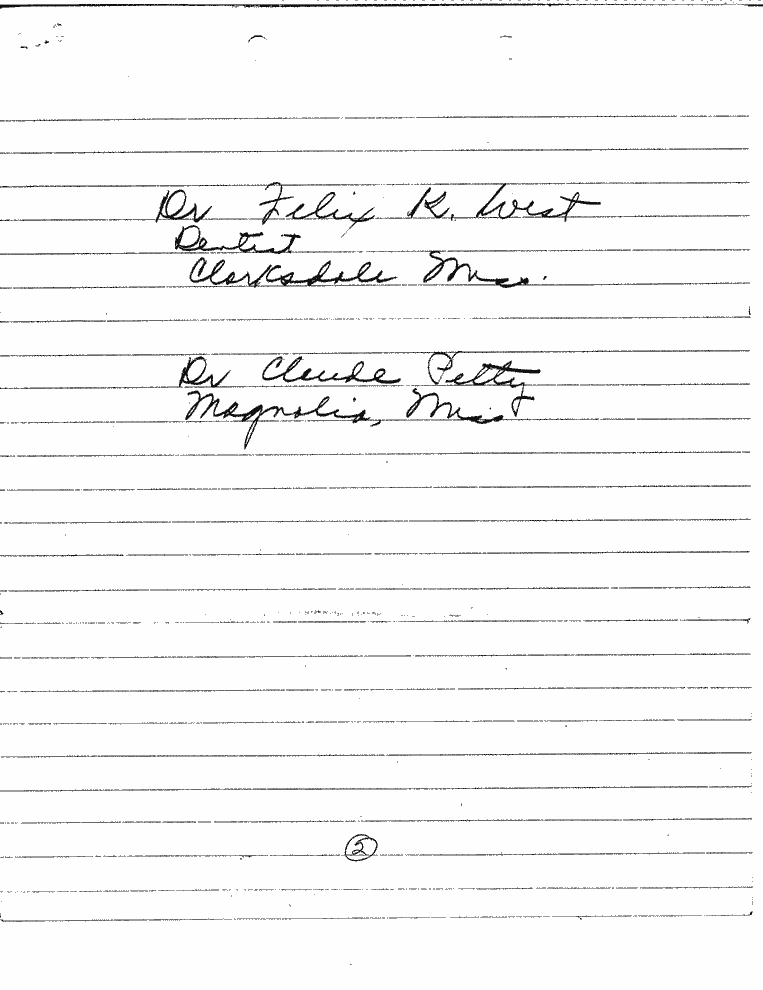 Dr Felix K. West
Dentist
Clarksdale Miss.
Dr Claude Petty
Magnolia, Miss
2